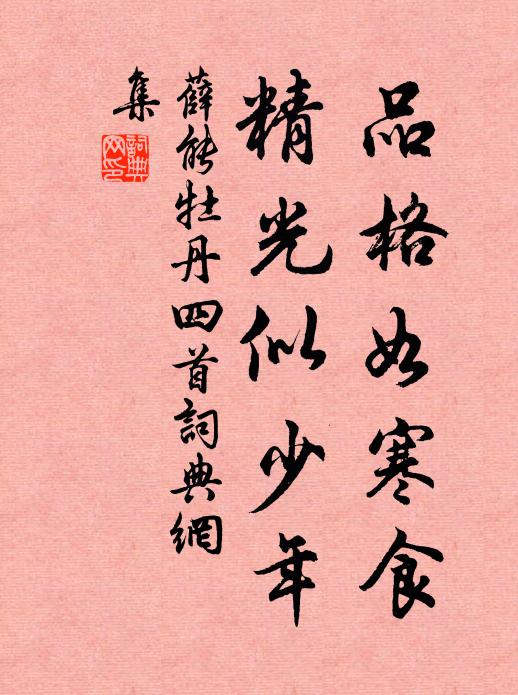 品格如寒食
精光似少年
薛能牡丹四首詞典網
集
詞典网印